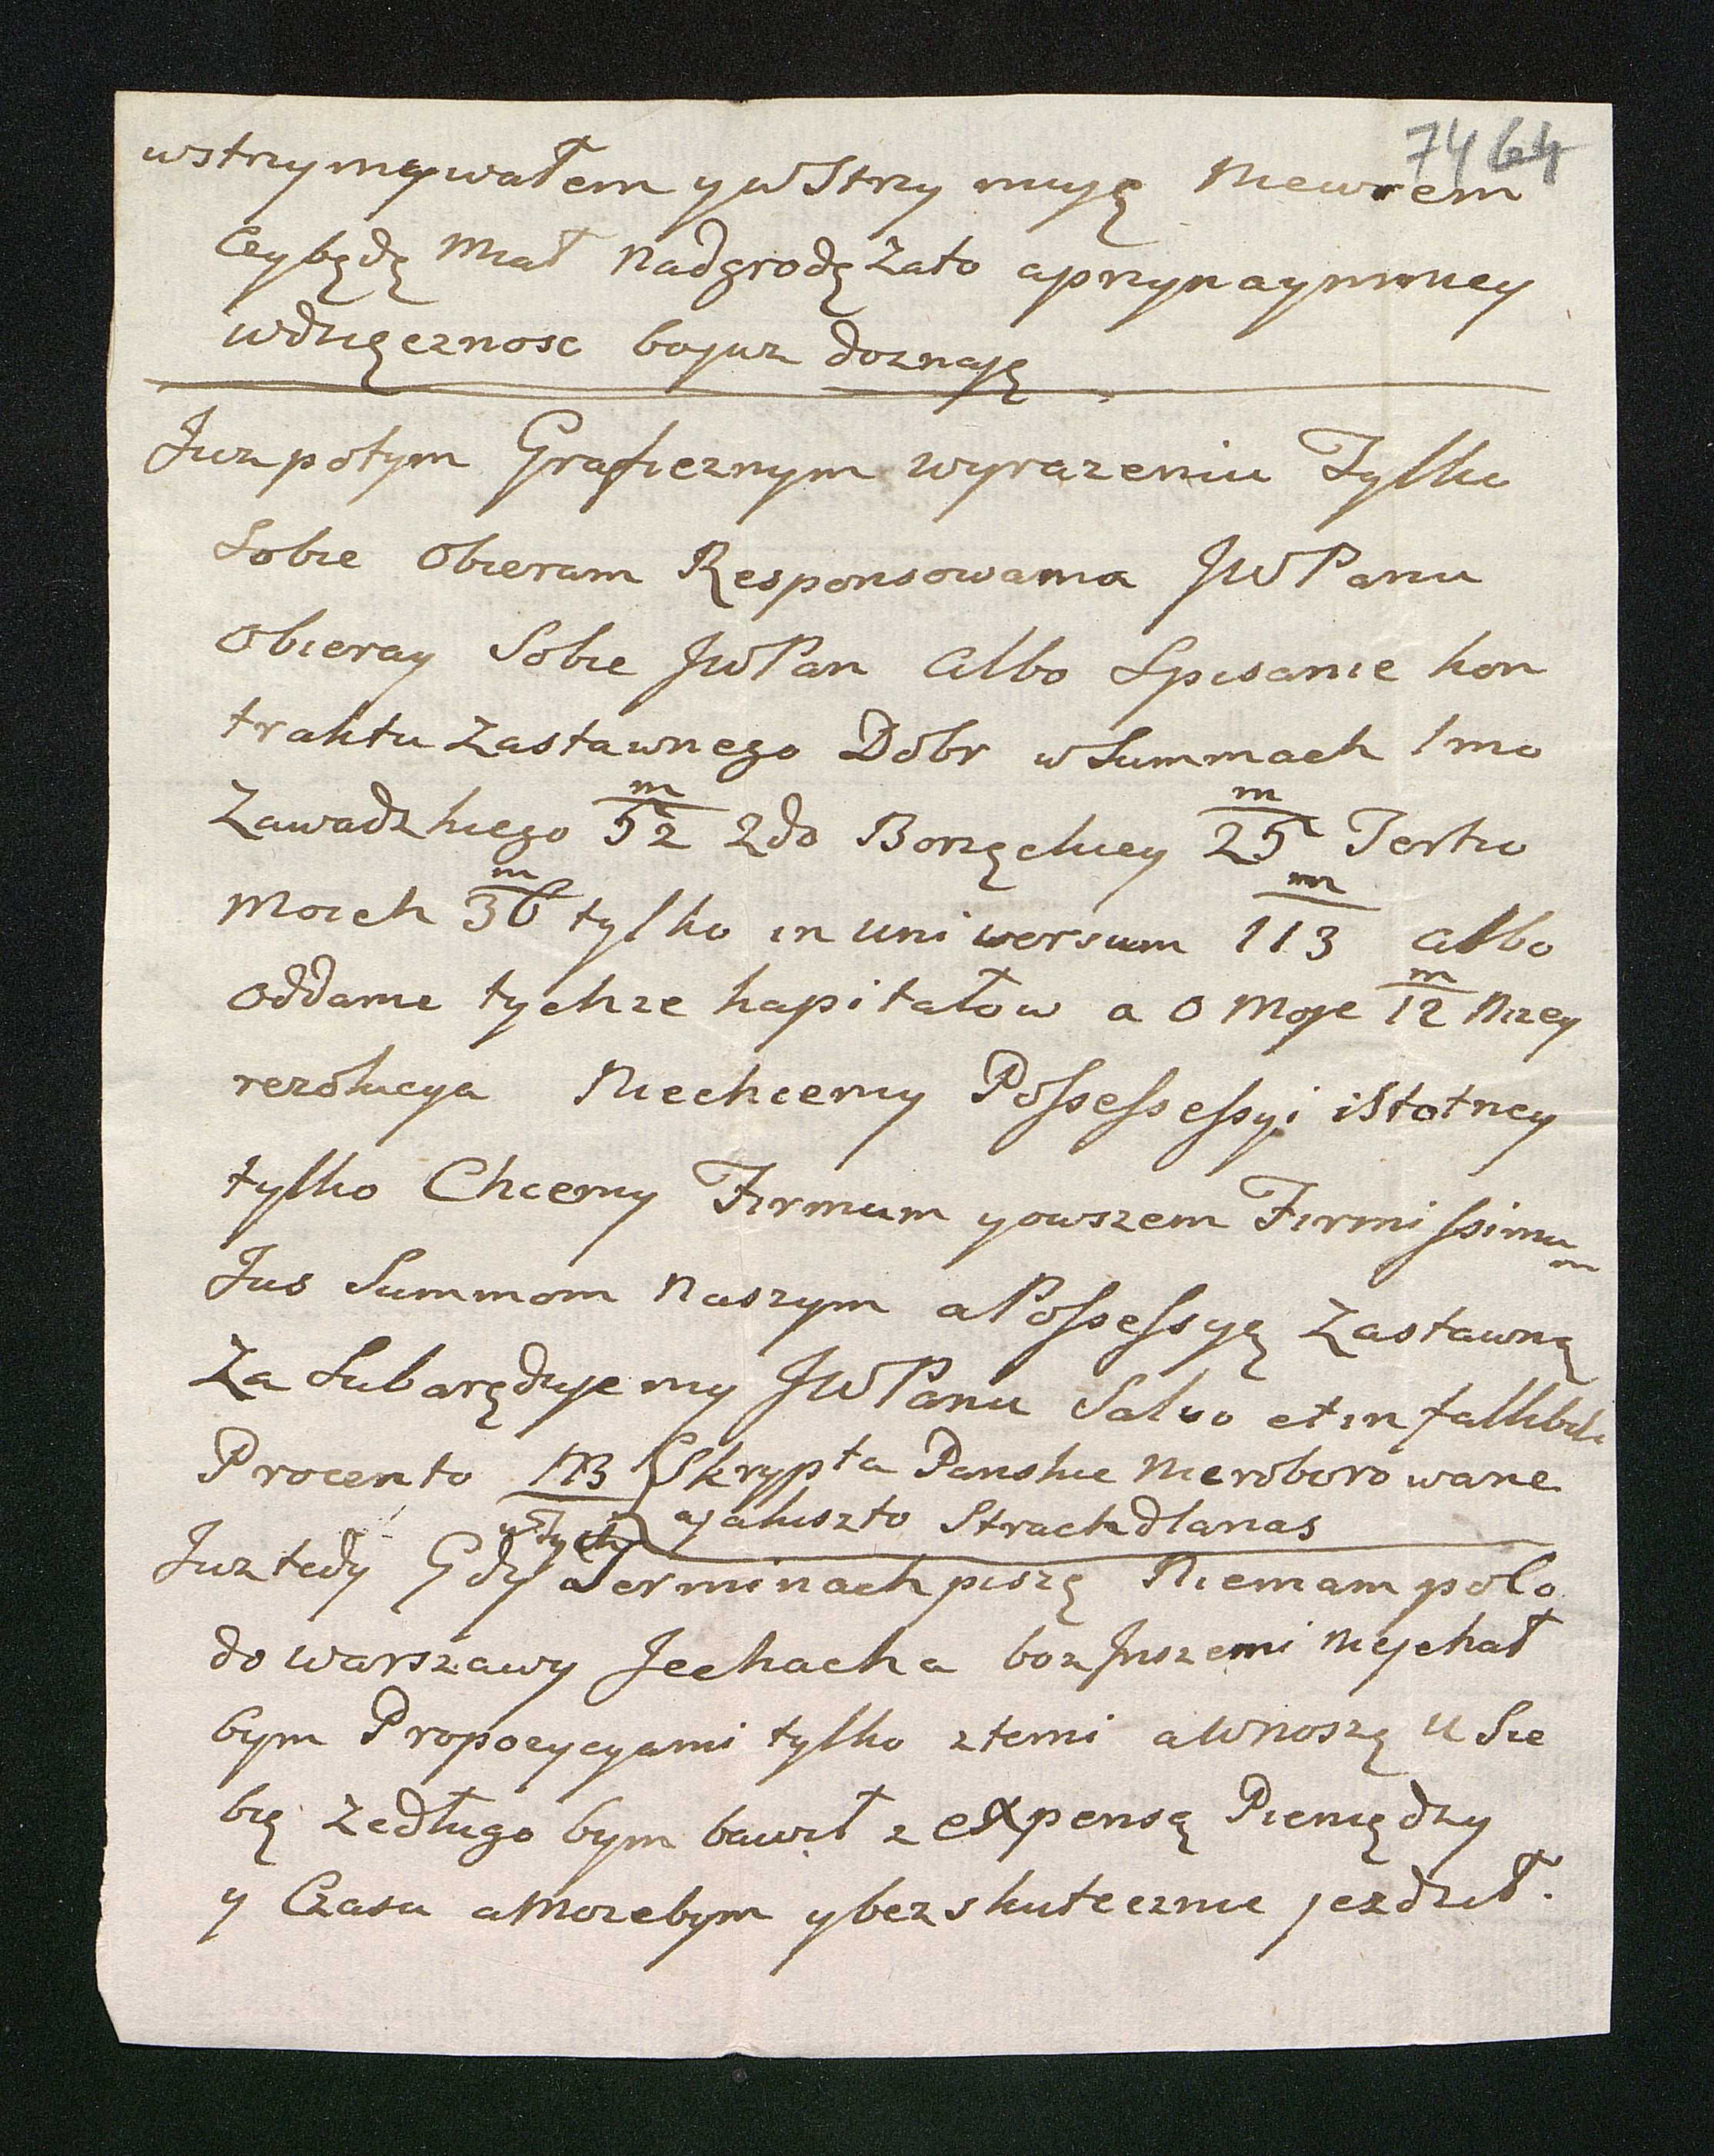 74 64
wstrzymywałem y wstrzymuję Niewiem
czybędę Miał Nadgrodę Zato aprzynaymniey
wdzięcznosc bojuz doznaję
Juzpotym Graficznym wyrazeniu Tylko
Sobie Obieram Responsowania JWPanu
Obieray Sobie JWPan Albo Spisanie kon
traktu Zastawnego Dobr wSummach 1mo
Zawadzkiego m/52 2do Borzęckiey m/25 Tertio
Moich m/36 tylko in universum m/113 albo
Oddanie tychze kapitałow a o Moje m/12 Nizey
rezolucya Niechcemy Possessessyi istotney
tylko Chcemy Firmum yowszem Firmissimum
Jus Summom Naszym aPossessyę Zastawną
Za Subarędujemy JWPanu Salvo et infallibili
Procento 113 Skrypta Panskie Nieroborowane
ajakiszto Strach dlanas
Juz tedy Gdy wtych Terminach piszę Niemam poco
do warszawy Jechacha boz Jnszemi Niejechał
bym Propozycyami tylko ztemi aWnoszę U Sie
bię Zedługo bym bawił z expensą Pieniędzy
y Czasu aMozebym ybezskutecznie jezdził.